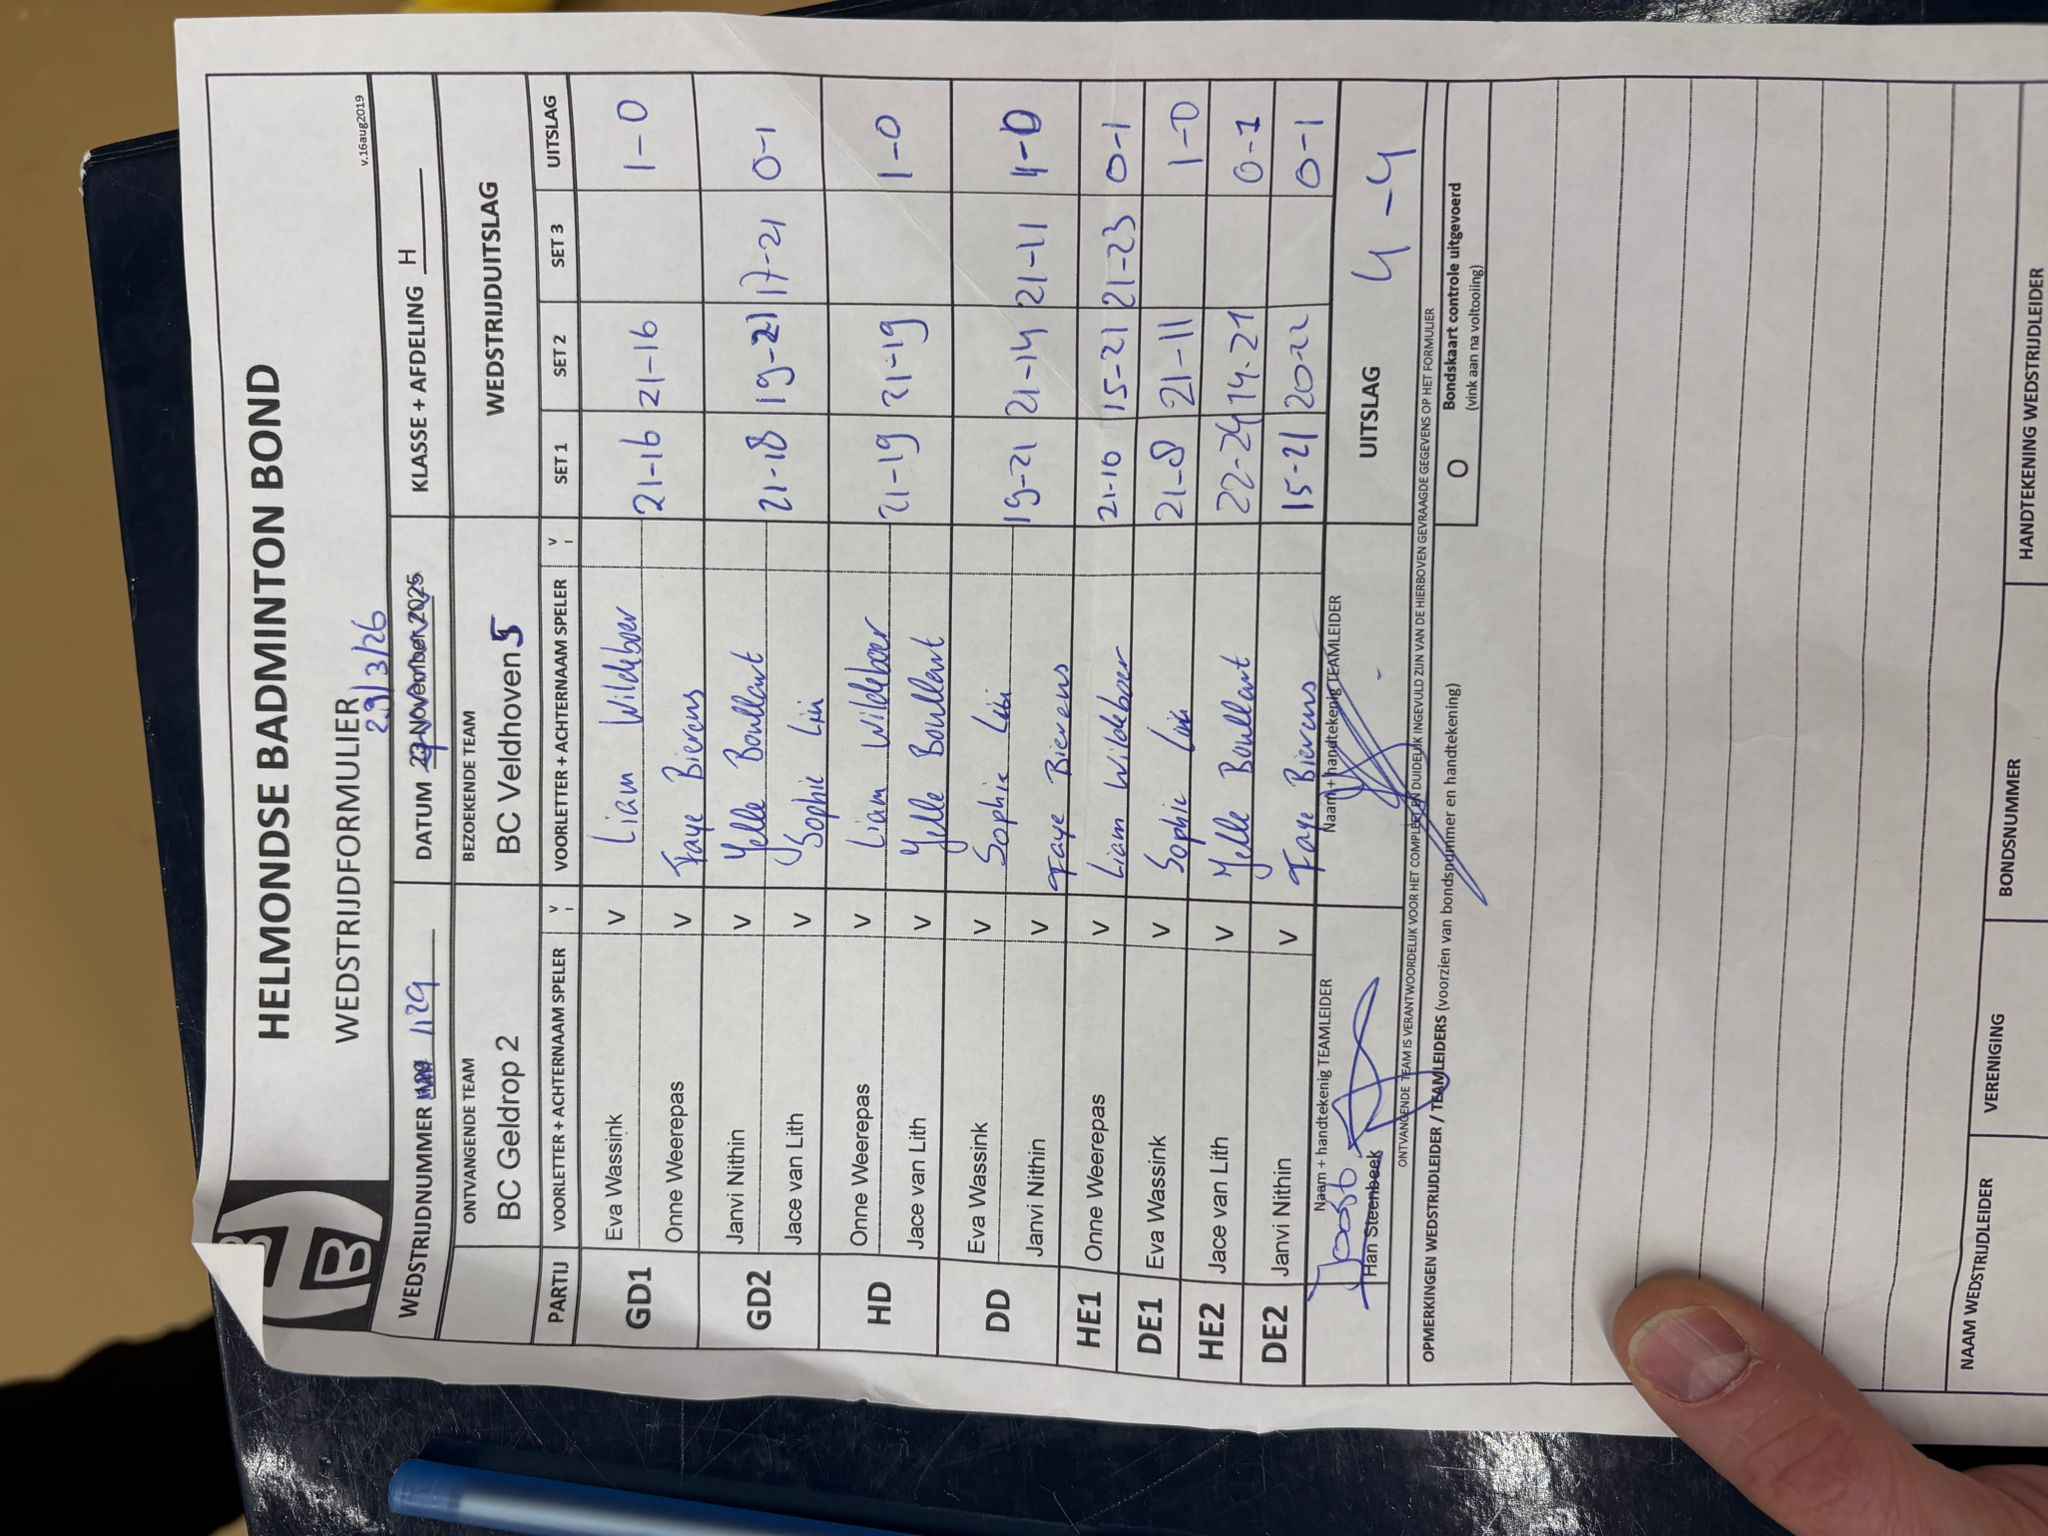 HELMONDSE BADMINTON BOND
WEDSTRIJDFORMULIER
v.16aug2019
29/3/26
WEDSTRIJDNUMMER 1129 DATUM 23 November 2025 KLASSE + AFDELING H
ONTVANGENDE TEAM BEZOEKENDE TEAM WEDSTRIJDUITSLAG
BC Geldrop 2 BC Veldhoven 5
PARTIJ VOORLETTER + ACHTERNAAM SPELER V VOORLETTER + ACHTERNAAM SPELER V SET 1 SET 2 SET 3 UITSLAG
GD1 Eva Wassink V Liam Wildeboer 21-16 21-16 1-0
Onne Weerepas V Faye Bierens
GD2 Janvi Nithin V Jelle Boullart 21-18 19-21 17-21 0-1
Jace van Lith V Sophie Lin
HD Onne Weerepas V Liam Wildeboer 21-19 21-19 1-0
Jace van Lith V Jelle Boullart
DD Eva Wassink V Sophie Lin 19-21 21-14 21-11 1-0
Janvi Nithin V Faye Bierens
HE1 Onne Weerepas V Liam Wildeboer 21-10 15-21 21-23 0-1
DE1 Eva Wassink V Sophie Lin 21-8 21-11 1-0
HE2 Jace van Lith V Jelle Boullart 22-24 14-21 0-1
DE2 Janvi Nithin V Faye Bierens 15-21 20-22 0-1
Naam + handtekenig TEAMLEIDER Naam + handtekenig TEAMLEIDER UITSLAG 4-4
Joost
Han Steenbeek
ONTVANGENDE TEAM IS VERANTWOORDELIJK VOOR HET COMPLEET EN DUIDELIJK INGEVULD ZIJN VAN DE HIERBOVEN GEVRAAGDE GEGEVENS OP HET FORMULIER
OPMERKINGEN WEDSTRIJDLEIDER / TEAMLEIDERS (voorzien van bondsnummer en handtekening)
O Bondskaart controle uitgevoerd
(vink aan na voltooiing)
NAAM WEDSTRIJDLEIDER VERENIGING BONDSNUMMER HANDTEKENING WEDSTRIJDLEIDER